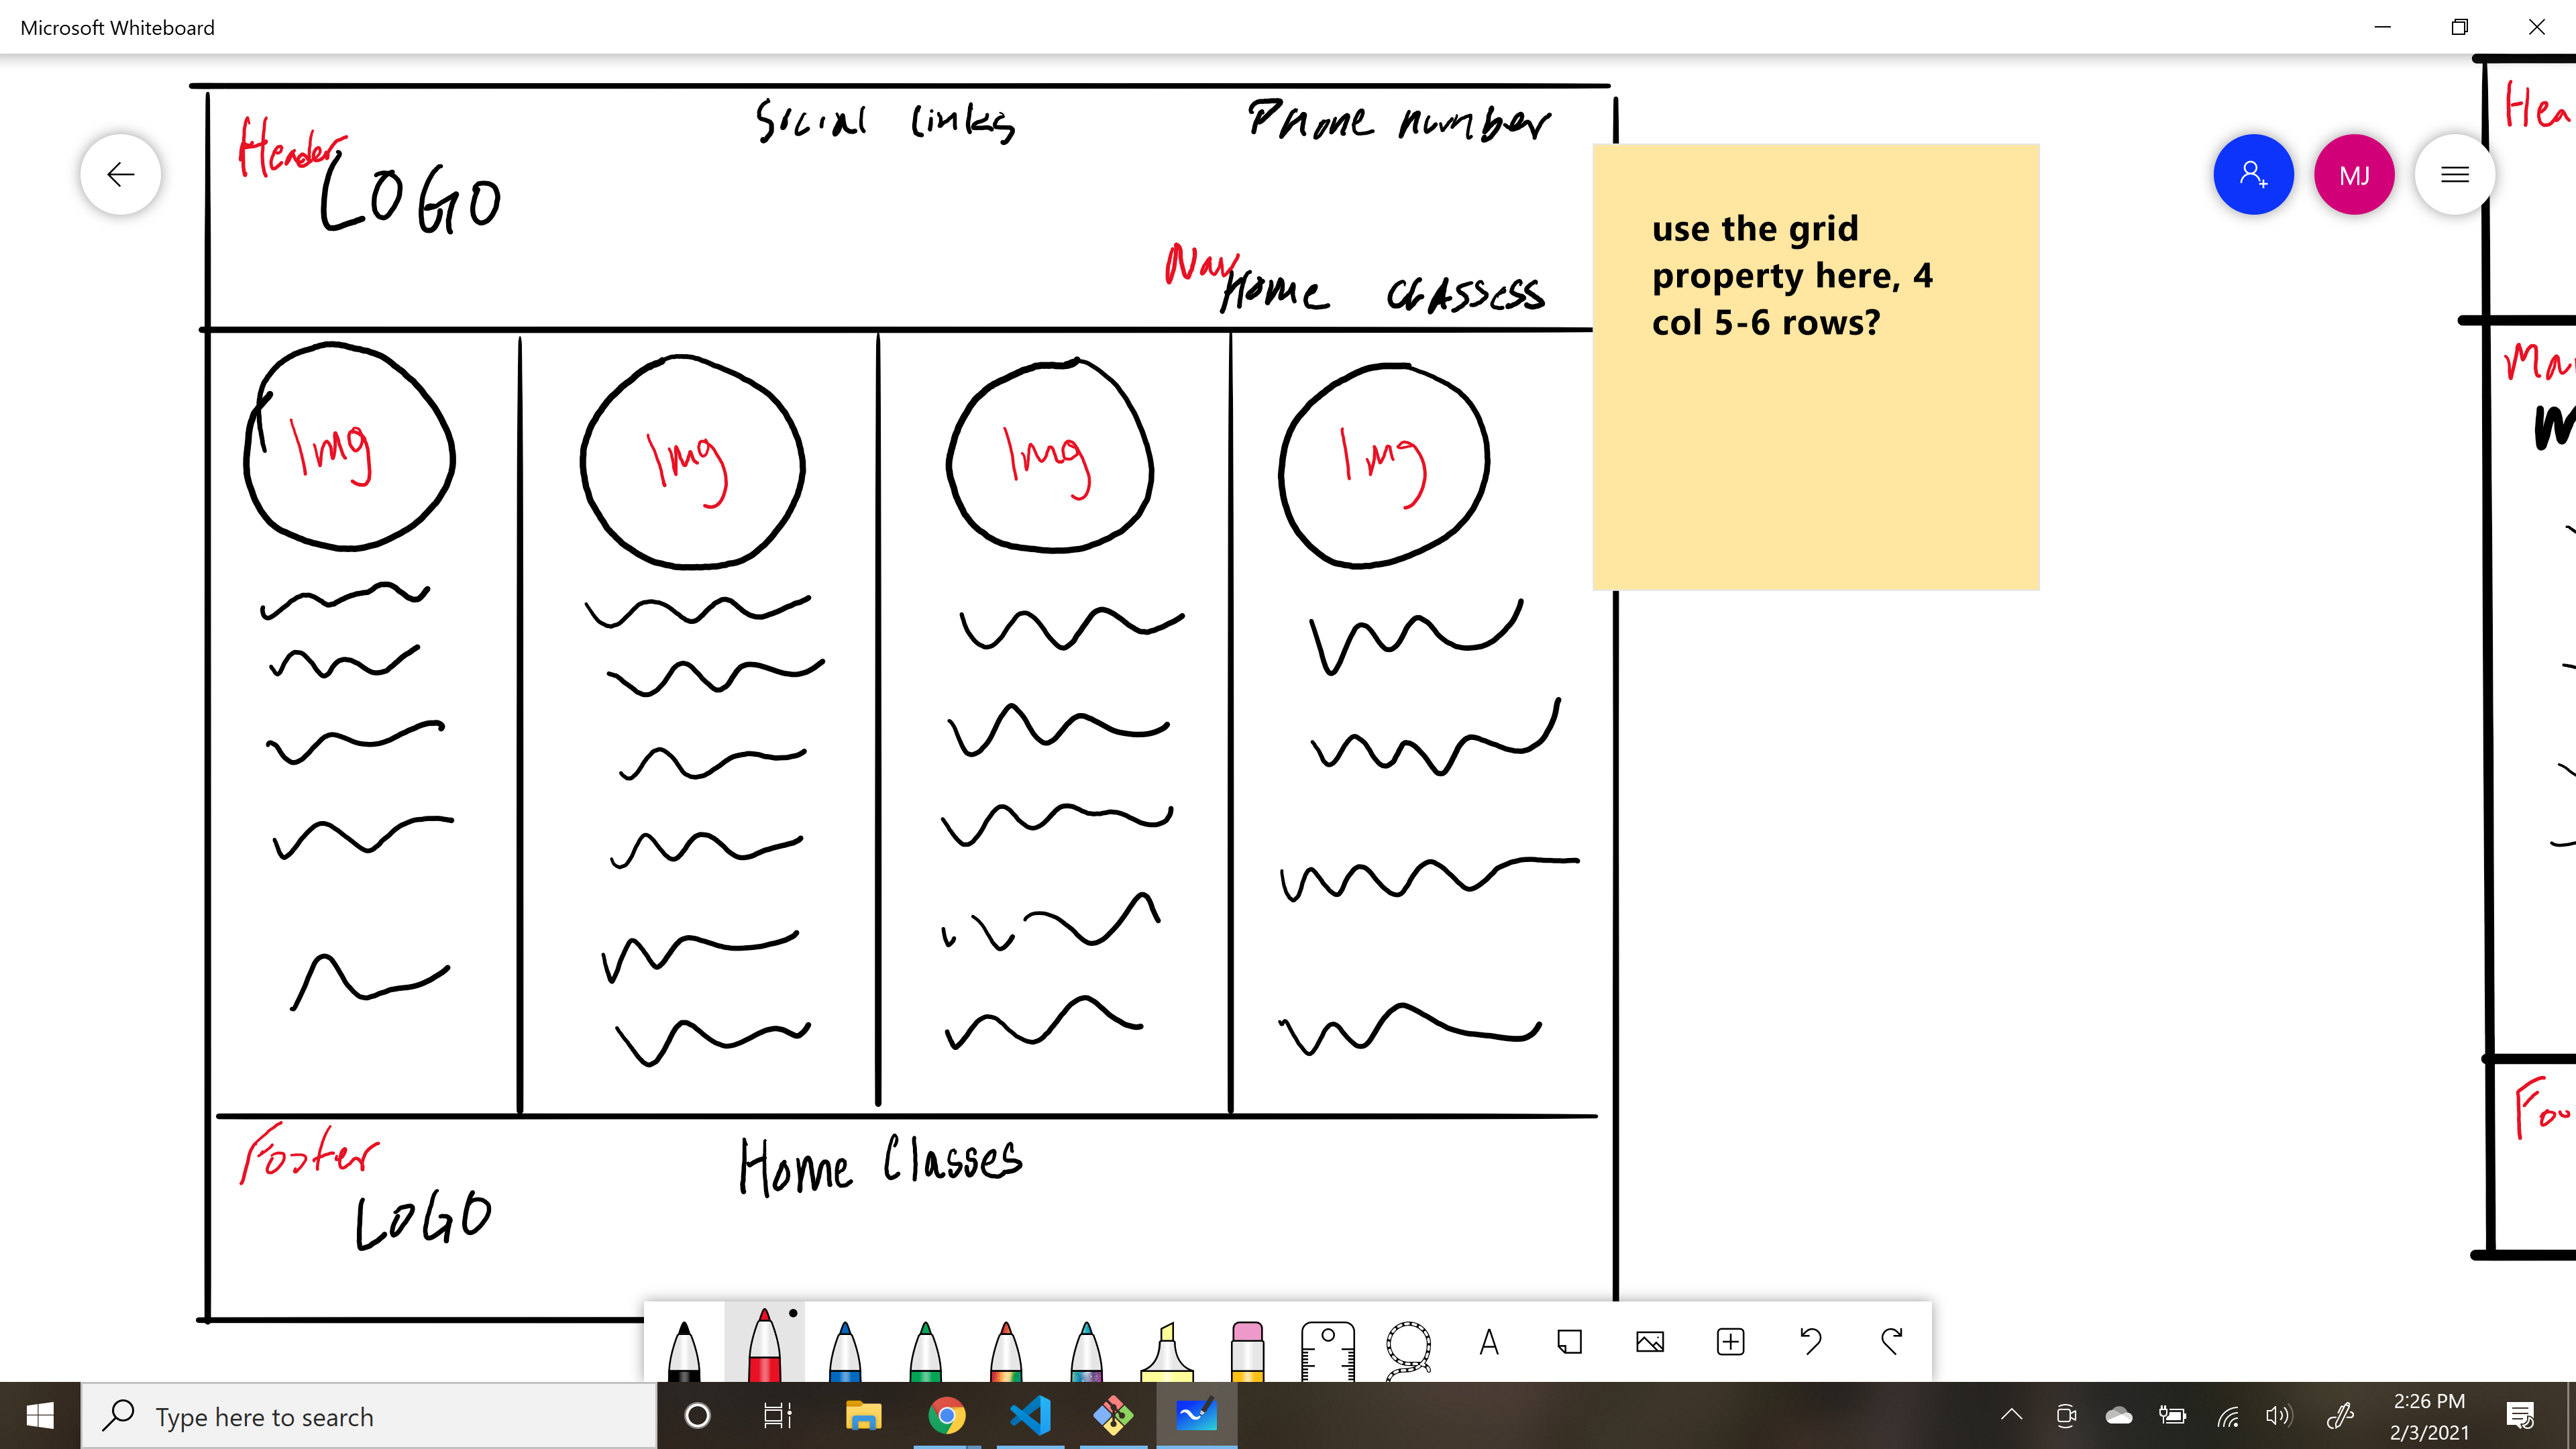 Microsoft Whiteboard
Header
Social links
Phone number
LOGO
Nav
Home
classess
use the grid
property here, 4
col 5-6 rows?
MJ
Hea
Img
Img
Img
Img
Ma
Footer
LOGO
Home Classes
Foo
A
Type here to search
2:26 PM
2/3/2021